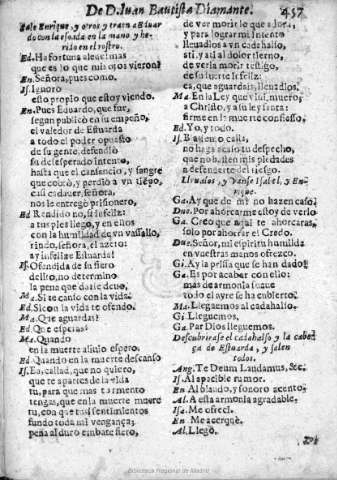 De D. Iuan Bautista Diamante. 457
Sale Enrique, y otros y traen a Eduar
do con la espada en la mano y he-
rido en el rostro.
Ed. Ha fortuna aleve! mas
que es lo que mis ojos vieron!
En. Señora, pues como.
Is. Ignoro
esto propio que estoy viendo.
En. Pues Eduardo, que fue,
segun publicò en su empeño,
el valedor de Estuarda
a todo el poder opuesto
de su gente, defendiò
su desesperado intento,
hasta que el cansancio, y sangre
que cociò, y perdiò a vn tiempo,
casi cadaver, señora,
nos le entregò prisionero,
Ed. Rendido no, si infeliz:
a tus pies llego, y en ellos
con la humildad de vn vasallo,
rindo, señora, el azero:
ay infelize Estuarda!
Is. Ofendida de su fiero
delito, no determino
la pena que darle deuo,
Ma. Si te canso con la vida:
Ed. Si con la vida te ofendo.
Ma. Que aguardas?
Ed. Que esperas?
Ma. Quando
en la muerte aliuio espero.
Ed. Quando en la muerte descanso
Is. Ea, callad, que no quiero,
que te apartes de la vida
tu, para que mas tormento
tengas, que en la muerte muere
tu, con que tus sentimientos
fundo toda mi vengança;
peña al duro embate fiero,
de ver morir lo que adora,
y para lograr mi intento
lleuadlos a vn cadahalso,
sti, y asi al dolor tierno,
de verla morir testigo,
de su suerte infeliz:
ea, que aguardais, lleuadlos.
Ma. En la Ley que viui, muero,
a Christo, y a su ley santa
firme en la muerte confiesso,
Ed. Yo, y todo.
Is. Blasfemo calla,
no hagas caso tu despecho,
que no basten mis piedades
a defenderte del riesgo.
Lleuadlos, y vanse Isabel, y En-
rique.
Ga. Ay que de mi no hazen caso?
Duq. Por ahorcarme estoy de verlo
Ga. Creo que aqui te ahorcaras,
solo por ahorrar el Credo.
Duq. Señor, mi espiritu humilda
en vuestras manos ofrezco.
Gi. Ay la prissa que se han dado!
Ga. Es por acabar con ello:
mas de armonia suaue
todo el ayre se ha cubierto.
Ma. Lleguemos al cadahalso.
Gi. Lleguemos.
Ga. Par Dios lleguemos.
Descubriràse el cadahalso y la cabe-
ça de Estuarda, y salen
todos.
Ang. Te Deum Laudamus, &c.
Is. Al apacible rumor.
En. Al blando, y sonoro acento,
Al. A esta armonia agradable,
Isa. Me ofreci.
En. Me acerquè.
Al. Llegò.
Biblioteca Regional de Madrid